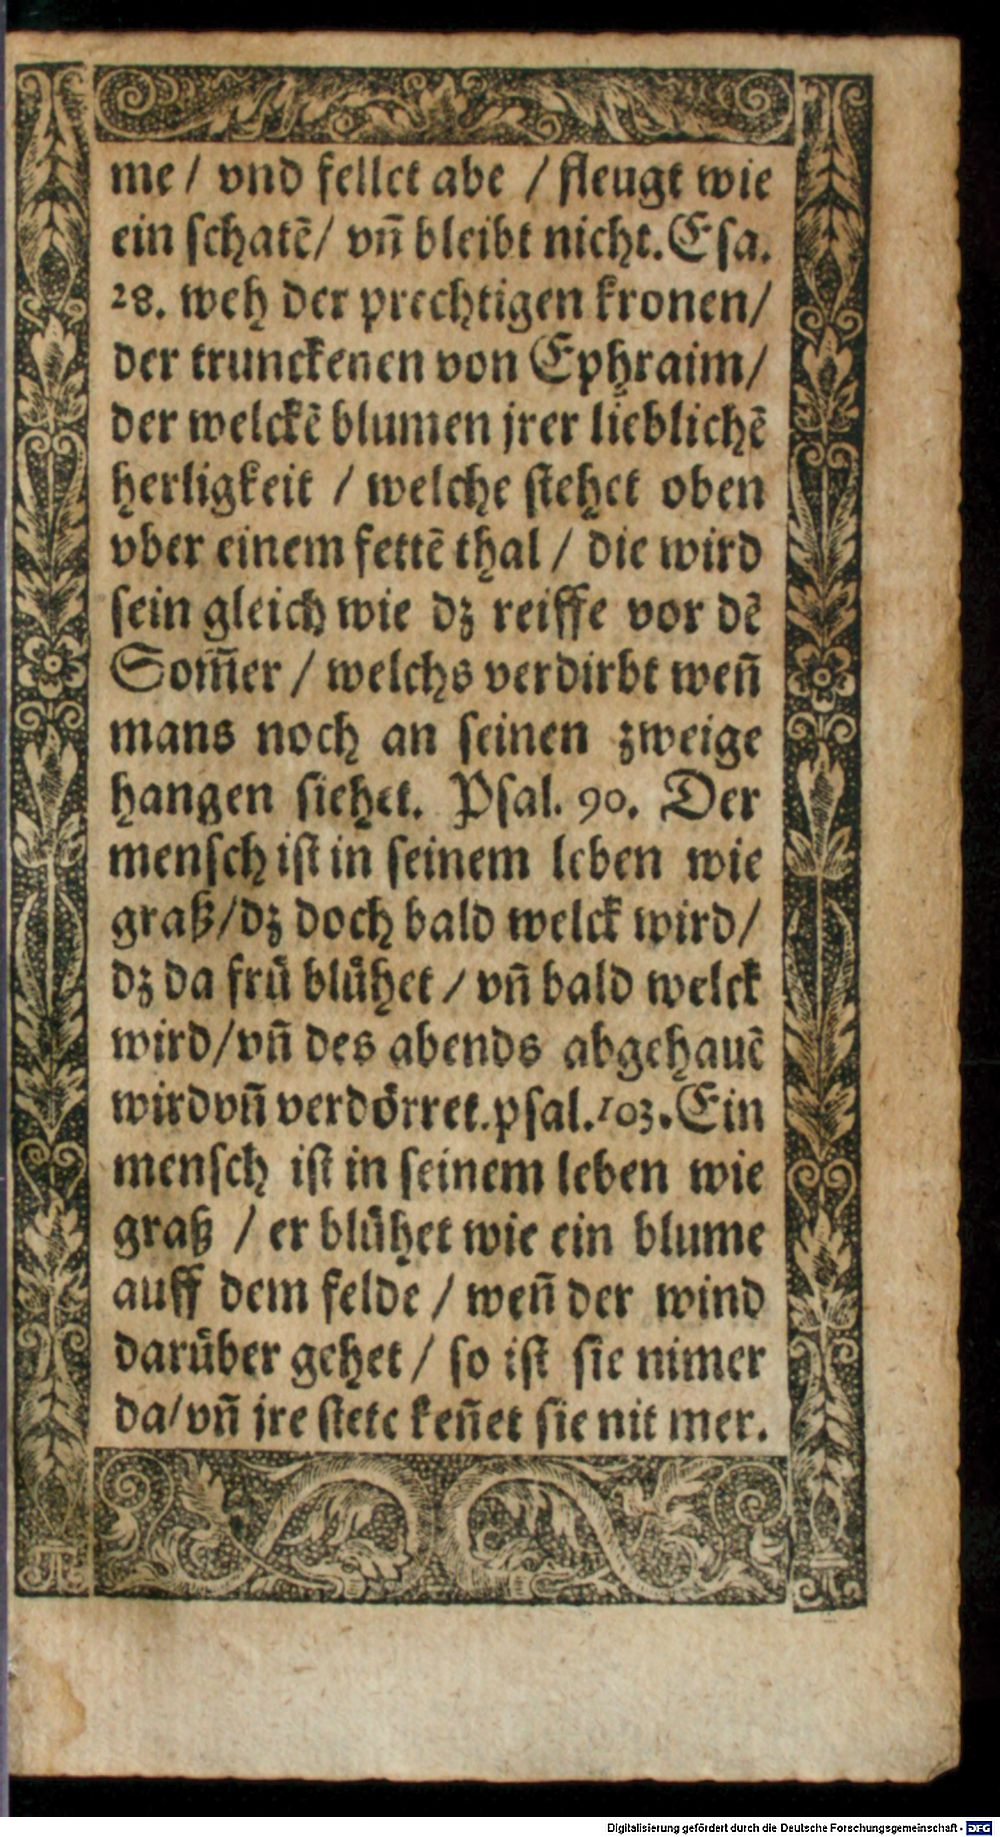 me / vnd fellet abe / fleugt wie
ein schatẽ / vñ bleibt nicht. Esa.
28. weh der prechtigen kronen /
der trunckenen von Ephraim /
der welckẽ blumen jrer lieblichẽ
herligkeit / welche stehet oben
vber einem fettẽ thal / die wird
sein gleich wie dz reiffe vor dẽ
Som̃er / welchs verdirbt weñ
mans noch an seinen zweige
hangen siehet. Psal. 90. Der
mensch ist in seinem leben wie
graß / dz doch bald welck wird /
dz da frů blůhet / vñ bald welck
wird / vñ des abends abgehauẽ
wird vñ verdörret. psal. 103. Ein
mensch ist in seinem leben wie
graß / er blůhet wie ein blume
auff dem felde / weñ der wind
darůber gehet / so ist sie nimer
da / vñ jre stete keñet sie nit mer.
Digitalisierung gefördert durch die Deutsche Forschungsgemeinschaft - DFG